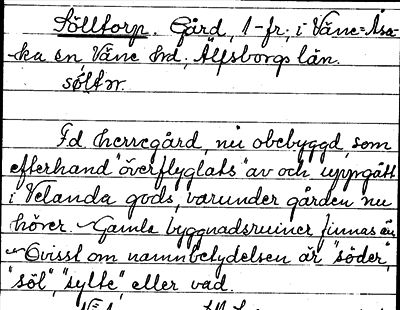 Sölltorp. Gård, 1-fr., i Väne-Åsa-
ka sn, Väne hrd, Älfsborgs län.
Fd herregård, nu obebyggd, som
efterhand "överflyglats" av och uppgått
i Velanda gods, varunder gården nu
hörer. ~ Gamla byggnadsruiner finnas än
~ Ovisst om namnbetydelsen är "söder",
"söl", "sylte", eller vad.